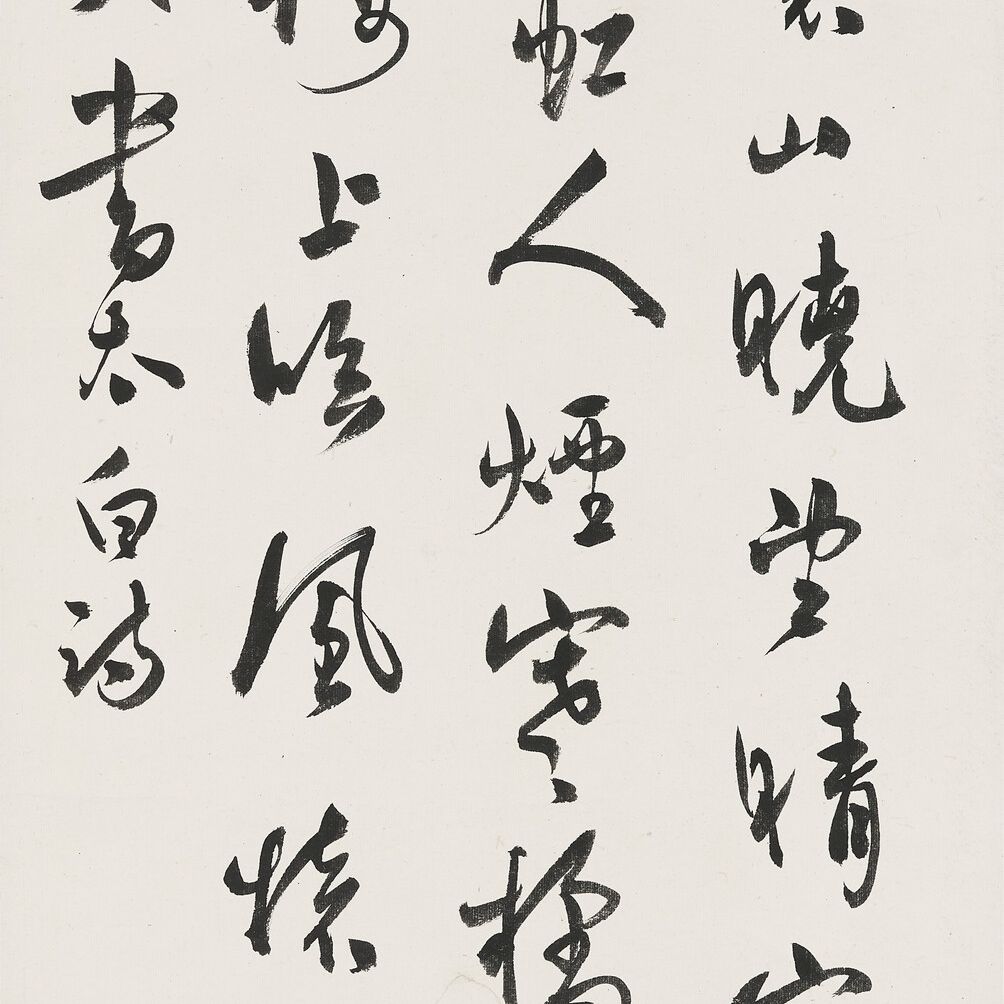 裏山曉望晴空
虹人煙寒橘
樓上臨風懷
書太白詩